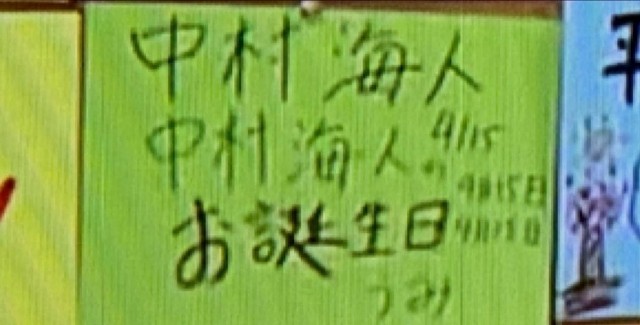 中村海人
中村海人 4/15
の 4月15日
お誕生日 4月15日
うみ
平